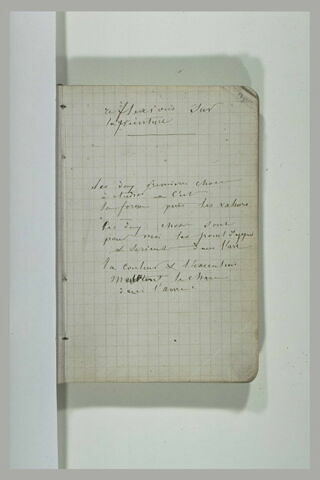 reflexions sur
la peinture
Les deux premières choses
à étudier c'est
la forme puis les valeurs
Ces deux choses sont
pour moi les points d'appui
sérieux dans l'art
la couleur & l'execution
mettent le charme
dans l'œuvre.